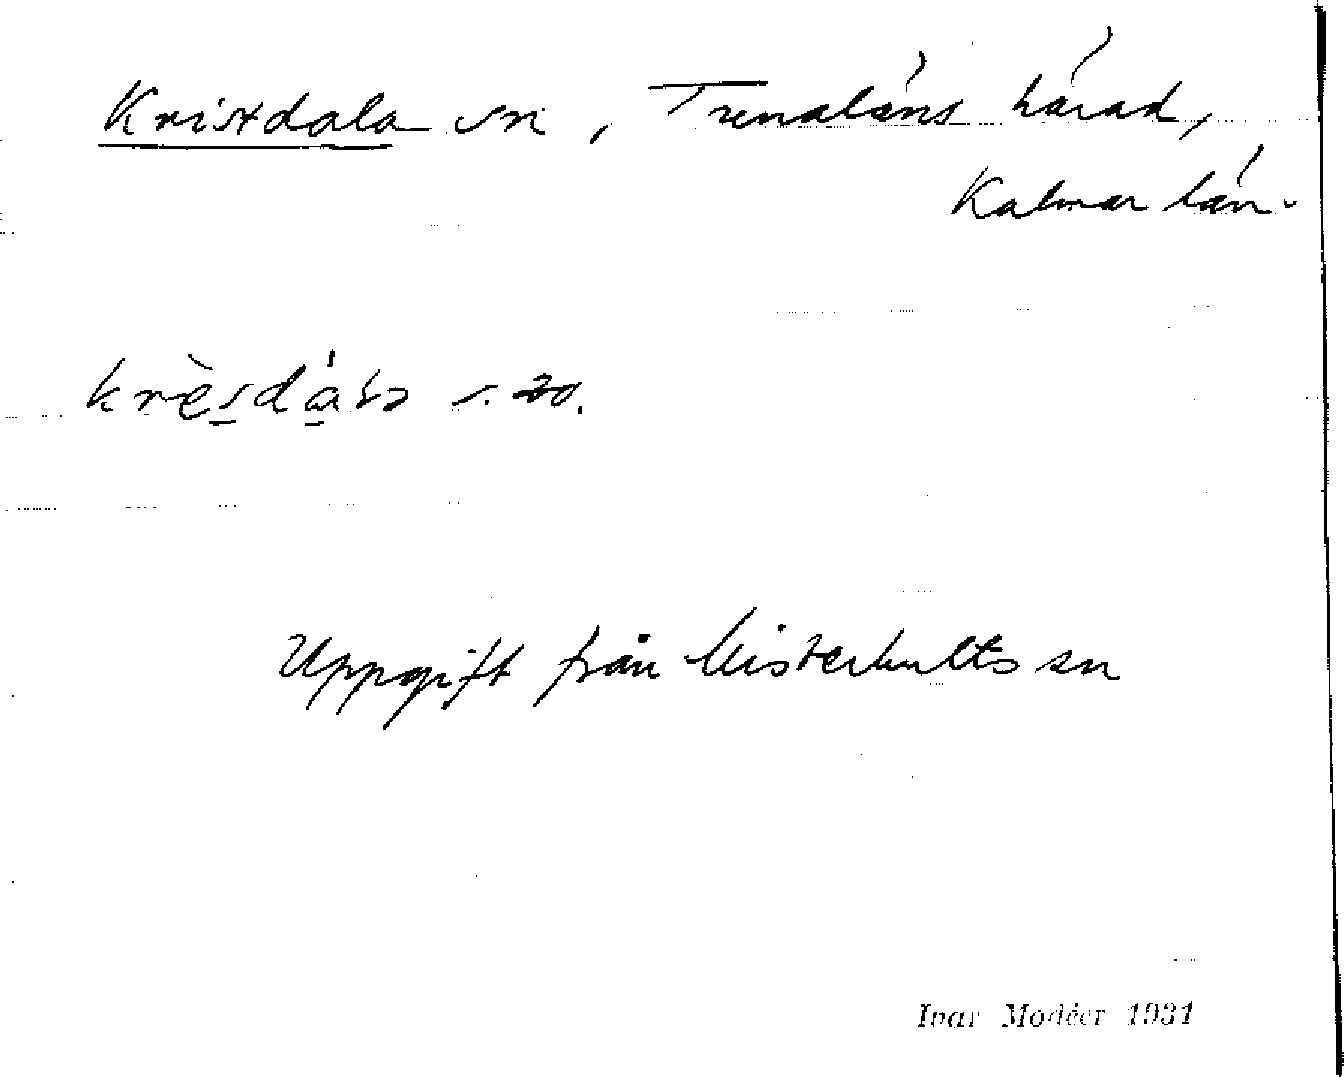 Kristdala sn, Tunaläns härad,
Kalmar län.
krèsdáɩ̯a s. 20.
Uppgift från Misterhults sn
Ivar Modéer 1931